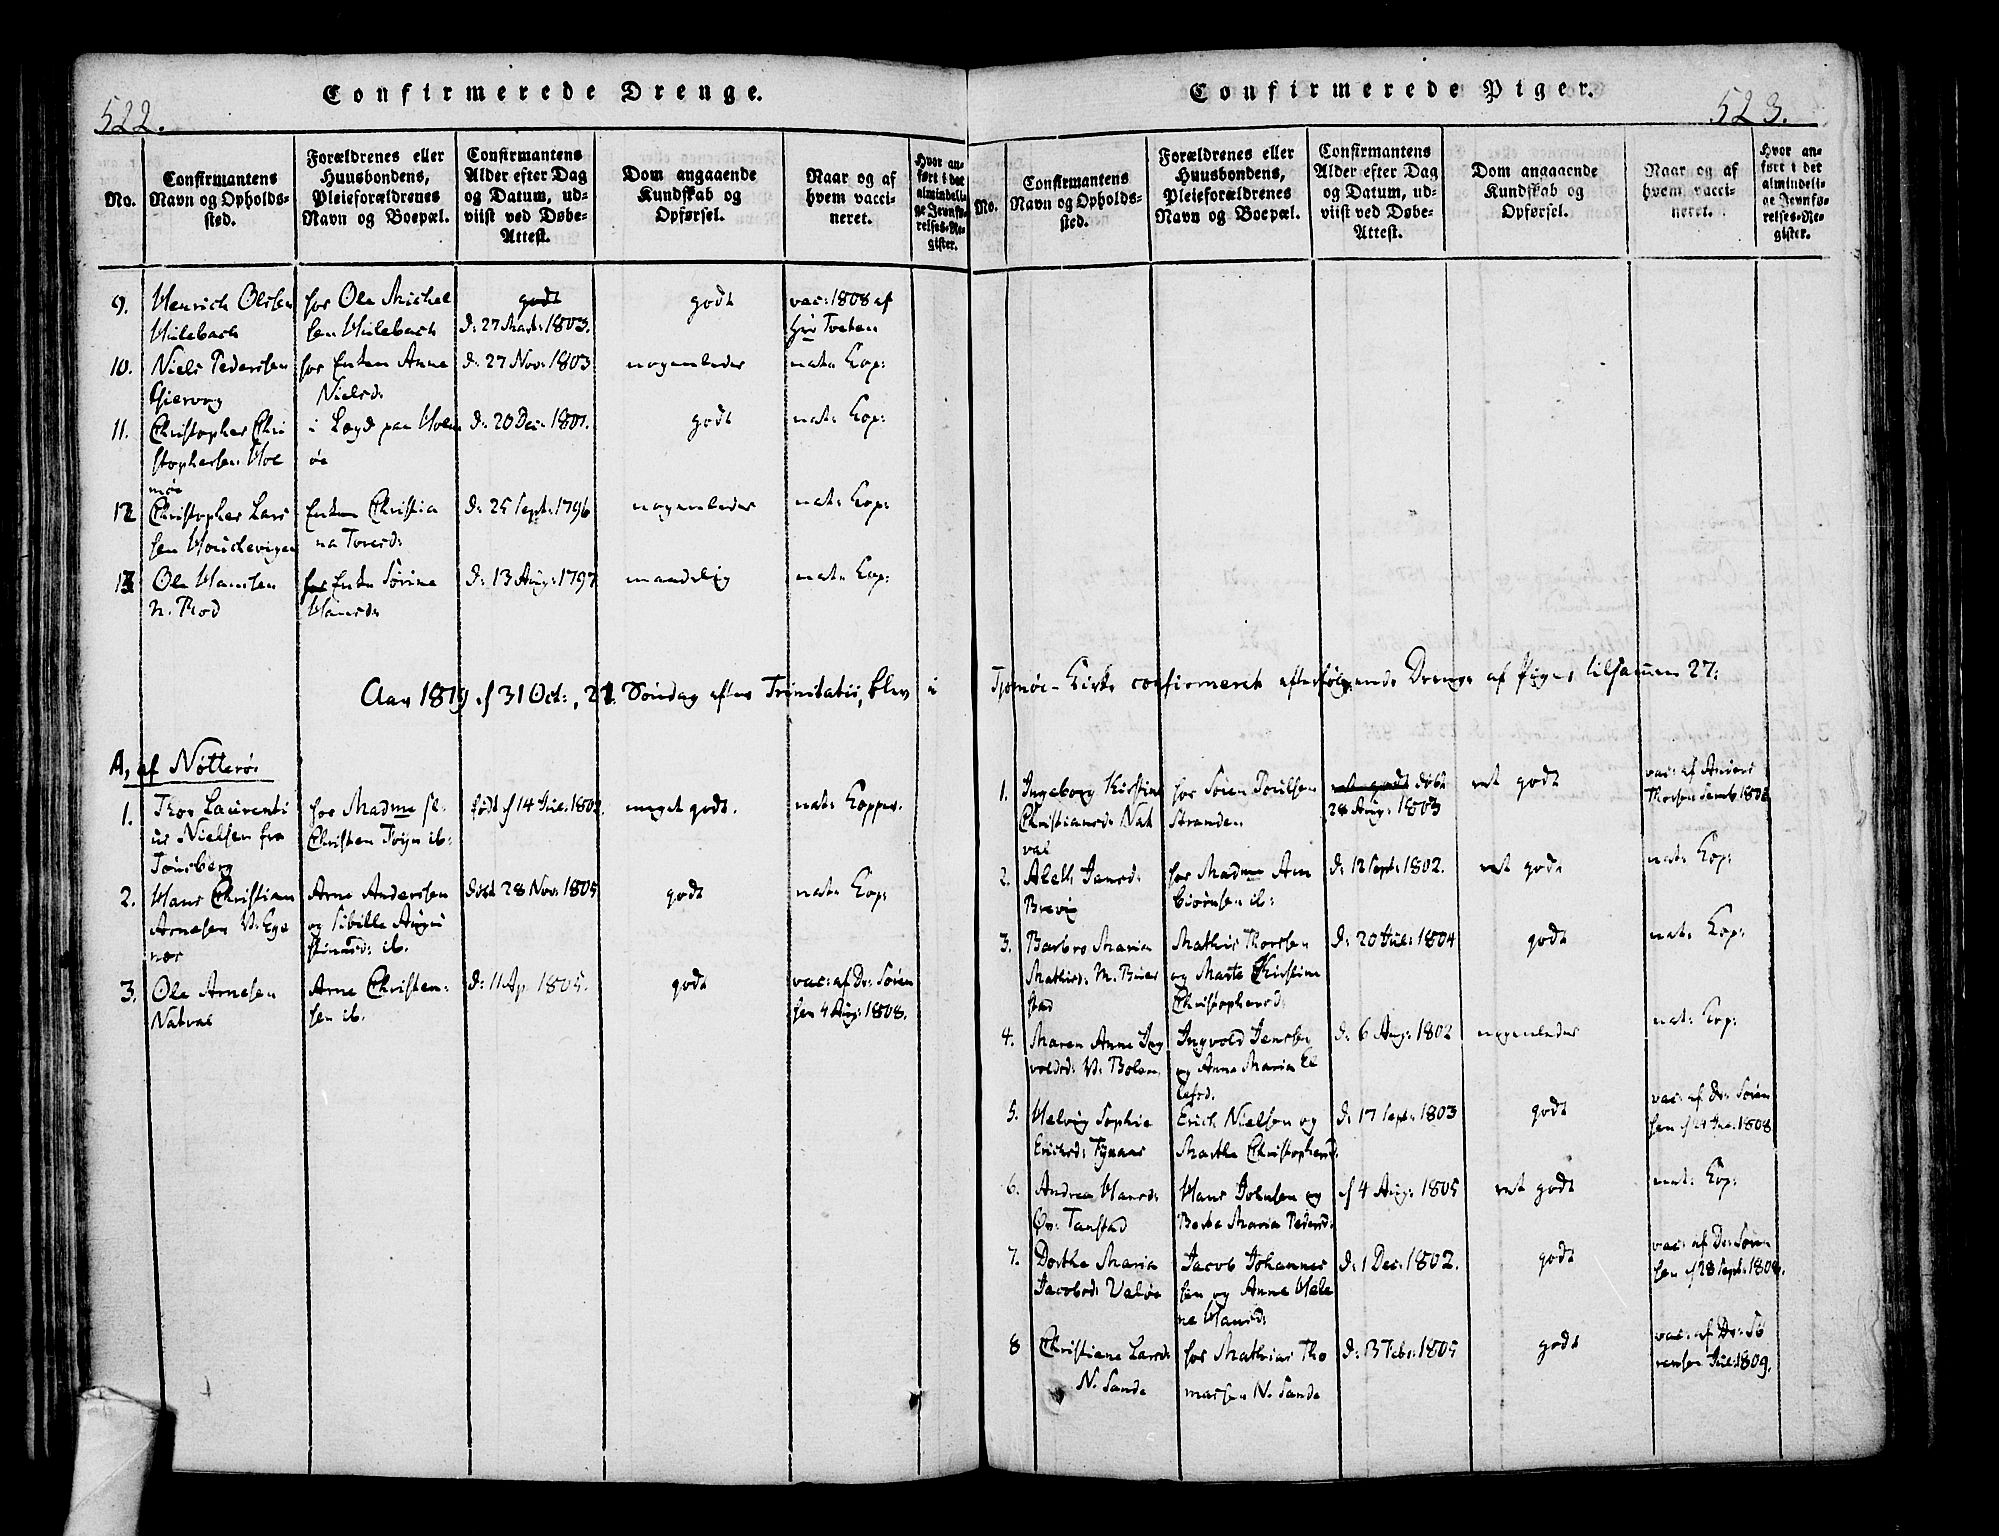 522.
Confirmerede Drenge.
No.
Confirmantens
Navn og Opholds-
sted.
Forældrenes eller
Huusbondens,
Pleieforældrenes
Navn og Boepæl.
Confirmantens
Alder efter Dag
og Datum, ud-
viist ved Døbe-
Attest.
Dom angaaende
Kundskab og
Opførsel.
Naar og af
hvem vacci-
neret.
Hvor an-
ført i det
almindeli-
ge Jevnfø-
relses-Re-
gister.
9.
Henrich Olssen
Hulebach
hos Ole Michel
sen Hulebach
godt
d: 27 Mart: 1803.
godt
vac: 1808 af
Tveten
10.
Niels Pederssen
Giervog
hos Enken Anne
Nielsd:
d: 27 Nov: 1803
nogenledes
nat: Kop:
11.
Christopher Chri
stophersen Hol
møe
i Lægd paa Holm
øe
d: 20 Dec: 1801.
godt
nat: Kop:
12
Christopher Lars
sen
Enken Christia
na Toresd:
d: 25 Sept: 1796
nogenledes
nat: Kop:
13
Ole Hanssen
N. Rod
hos Enke Sørine
Hansd:
d: 13 Aug: 1797
maadelig
nat: Kop:
Aar 1819 d 31 Oct:, 21. Søndag efter Trinitatis, blev i
A, af Nøtterø.
1.
Thor Laurenti
us Nielsen fra
Tønsberg
hos Madme sl.
Christen Foÿn ib:
født d 14 Jul: 1802.
meget godt.
nat: Kopper.
2.
Hans Christian
Arnesen V: Ege
næs
Arne Anderssen
og Sibille Augu
stinusd: ib.
døbt 28 Nov: 1805
godt
nat: Kop:
3.
Ole Arnesen
Natval
Arne Christen-
sen ib.
d: 11 Ap 1805.
godt
vac: af Dr: Søren
sen 4 Aug: 1808.
Confirmerede Piger.
523.
No.
Confirmantens
Navn og Opholds-
sted.
Forældrenes eller
Huusbondens,
Pleieforældrenes
Navn og Boepæl.
Confirmantens
Alder efter Dag
og Datum, ud-
viist ved Døbe-
Attest.
Dom angaaende
Kundskab og
Opførsel.
Naar og af
hvem vacci-
neret.
Hvor an-
ført i det
almindeli-
ge Jevnfø-
relses-Re-
gister.
Tjømøe-Kirke confirmeret efterfølgende Drenge af Piger tilsammen 27:
1.
Ingeborg Kirstine
Christiansd: Nat
val
hos Søren Poulsen
Stranden
ret godt døbt
28 Aug: 1803
ret godt
vac: af Anders
Thorsen
2.
Aleth Jensd:
Brevig
hos Madme Ann
Biørnsen ib:
d: 12 Sept: 1802.
ret godt
nat: Kop:
3.
Barbro Maria
Mathisd: M. Buer
stad
Mathis Thorsen
og Marte Kirstine
Christophersd:
d: 20 Jul: 1804
godt
nat: Kop:
4.
Maren Anne Ing
voldsd: V: Bolæn
Ingvold Jenssen
og Anne Maria El
lefsd.
d: 6 Aug: 1802
nogenledes
nat: Kop:
5.
Helvig Sophie
Ericksd:
Erich Nielsen og
Marthe Christophersd:
d: 17 Sept: 1803
godt
vac: af Dr: Søren
sen 1808
6.
Andrea Hansd:
Øv: Tanstad
Hans Johnsen og
Berte Maria Pedersd:
d 4 Aug: 1805
ret godt
nat: Kop:
7.
Dorthe Maria
Jacobsd: Valøe
Jacob Johannes
sen og Anne Hele
ne Hansd:
d: 1 Dec: 1802.
godt
vac: af Dr: Søren
sen d 28 Sept: 1808.
8
Christiane Larsd:
N. Sande
hos Mathias Tho
massen N. Sande
d: 3 Febr: 1805
godt
vac: af Dr: Sø
rensen Jul: 1809.